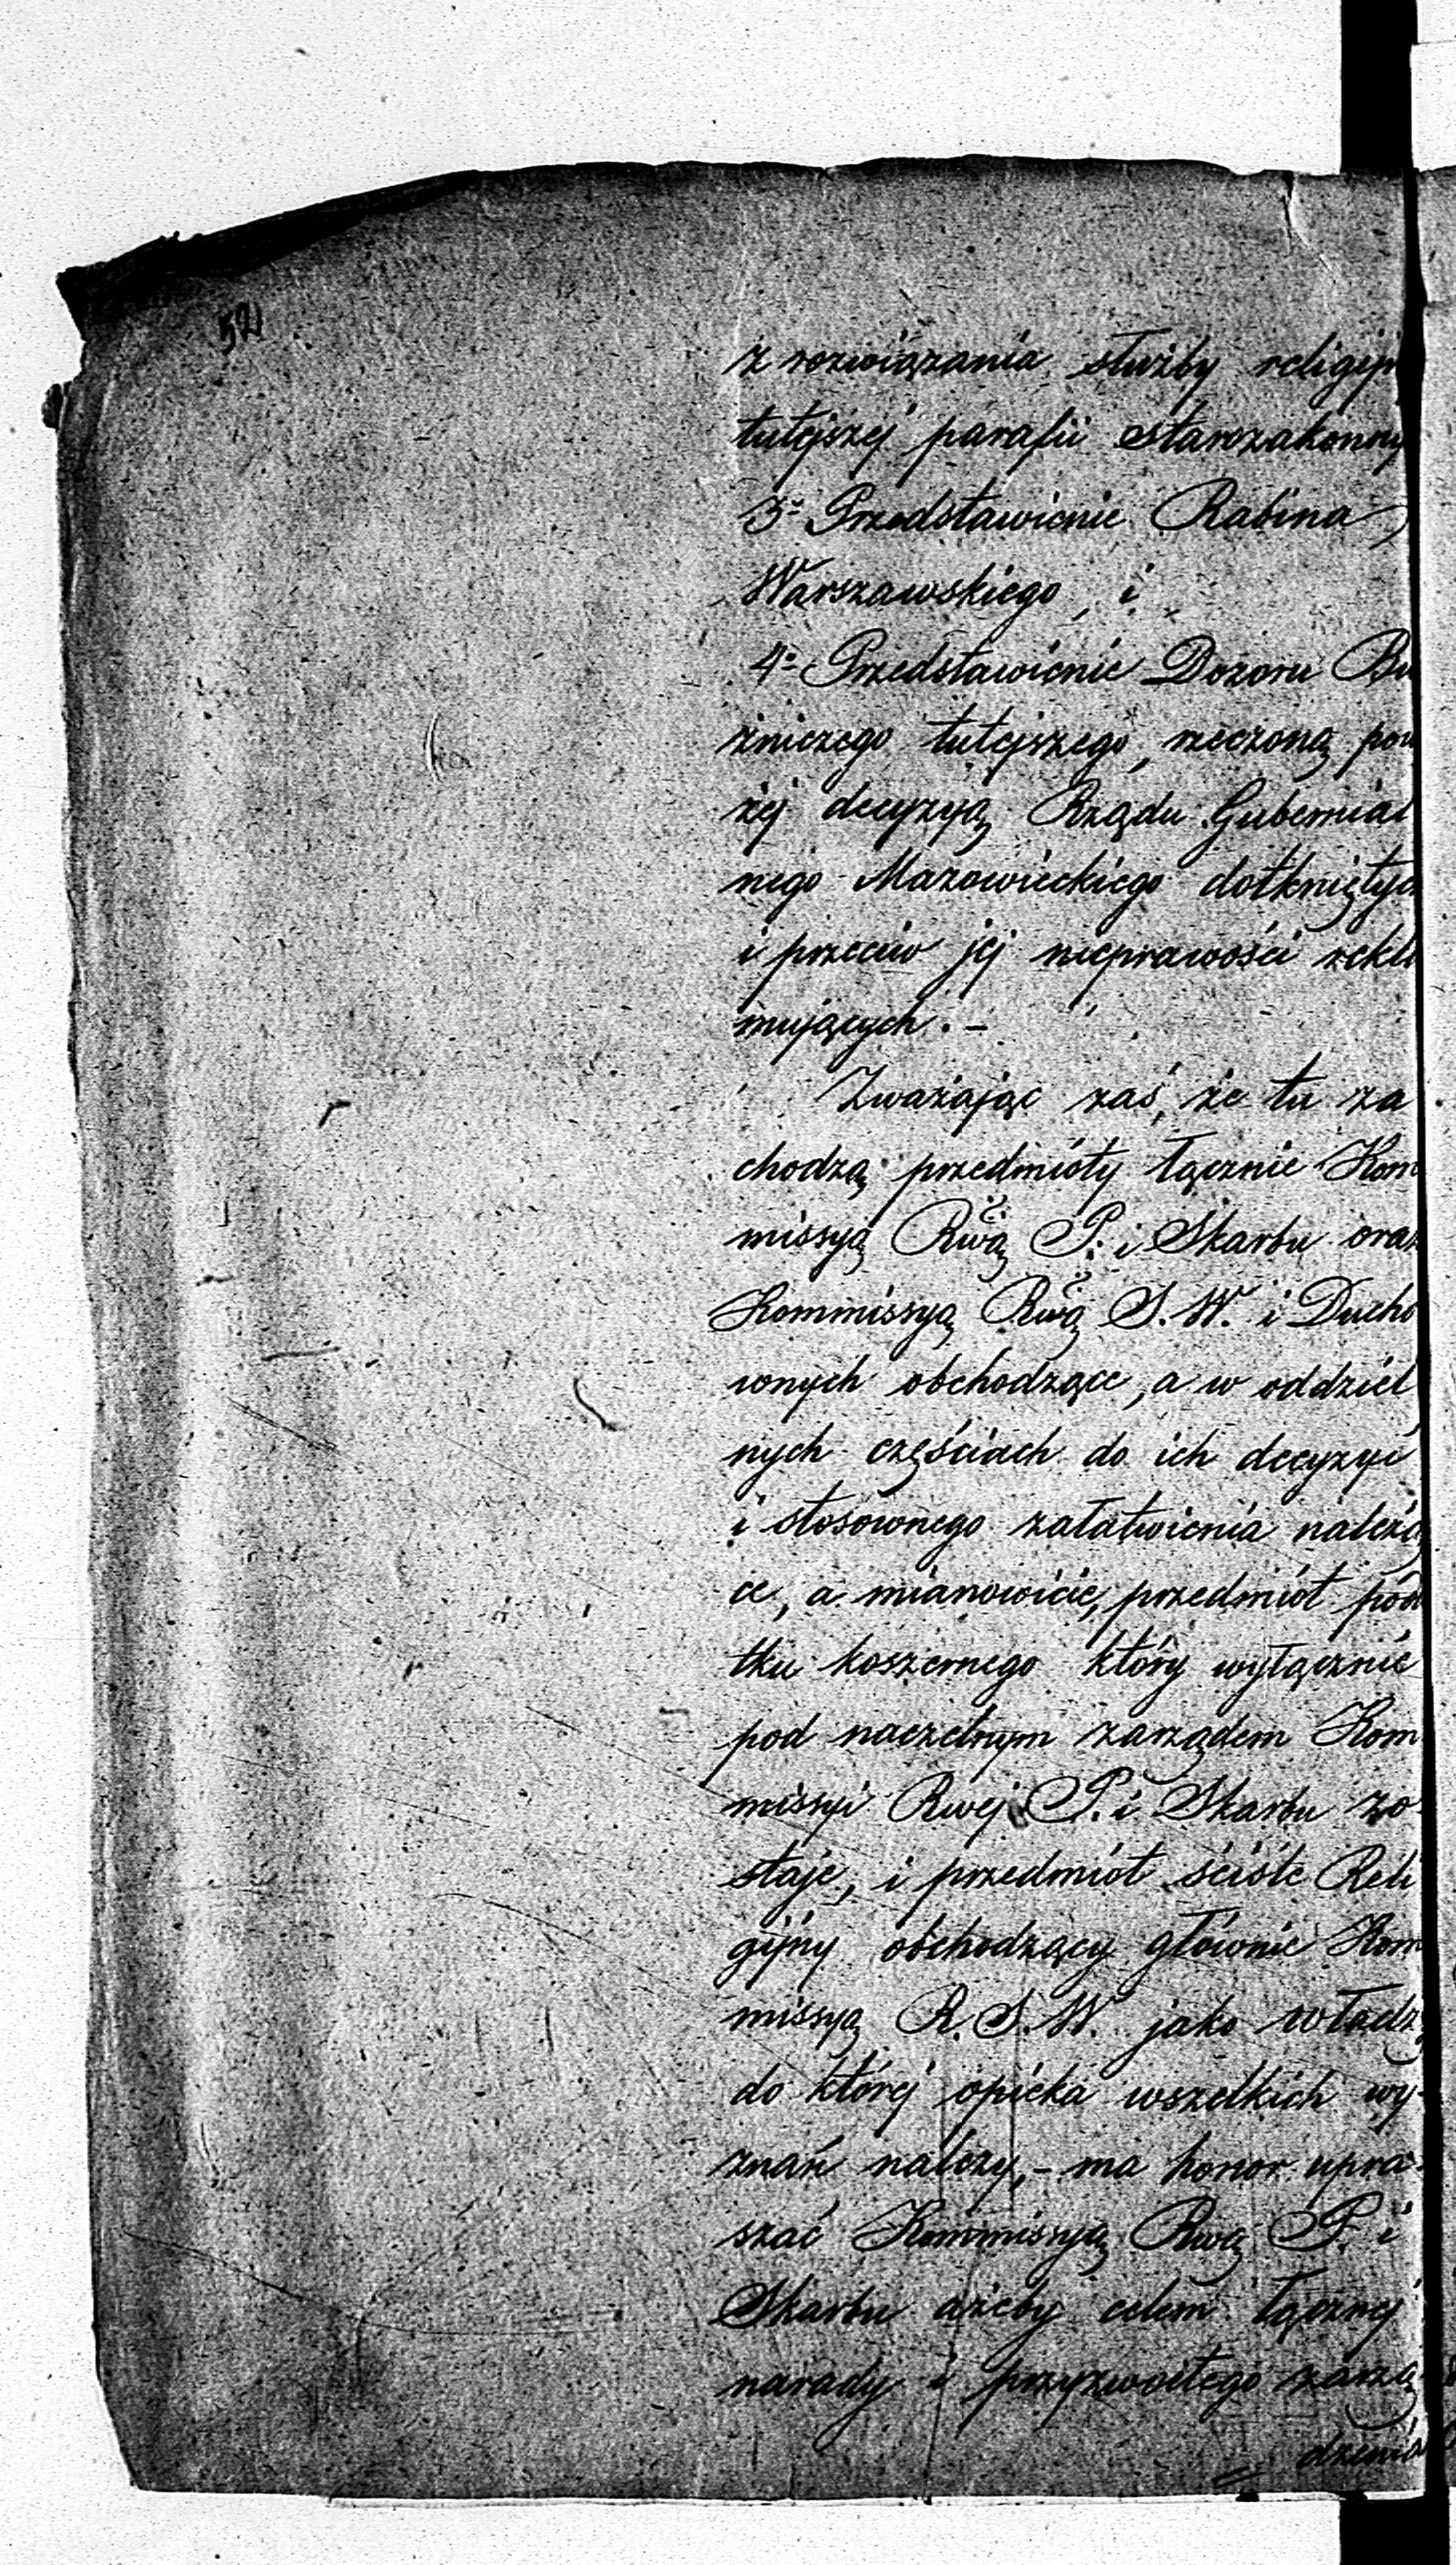 52
z rozwiązania służby religijn
tutejszej parafii starozakonny
3º Przedstawienie Rabina
Warszawskiego, i
4º Przedstawienie Dozoru Bu
źniczego tutejszego, rzeczoną pow
żej decyzyą Rządu Gubernial
nego Mazowieckiego dotkniętyc
i przeciw jej nieprawości rekla
mujących. –
Zważając zaś, że tu za
chodzą przedmioty łącznie Kom
missyą Rwą P. i Skarbu oraz
Kommissyą Rwą S. W. i Ducho
wnych obchodzące, a w oddziel
nych częściach do ich decyzyi
i stosownego załatwienia należą
ce, a mianowicie, przedmiot pod
tku koszernego który wyłącznie
pod naczelnym zarządem Kom
missyi Rwej P. i Skarbu zo-
staje, i przedmiot ściśle Reli
gijny obchodzący głównie Kom
missyą R. S. W. jako władzę
do której opieka wszelkich wy-
znań należy, – ma honor upra-
szać Kommissyą Rwą P. i
Skarbu ażeby celem łącznej
narady i przyzwoitego zarzą
dzenia